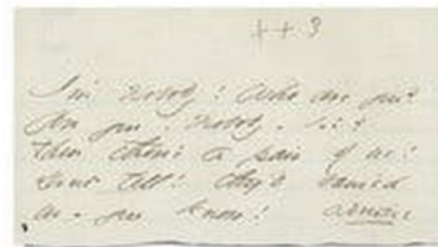 I'm Nobody! Who are you?
Are you - Nobody - too?
Then there's a pair of us!
Dont tell! they'd
us - you know!